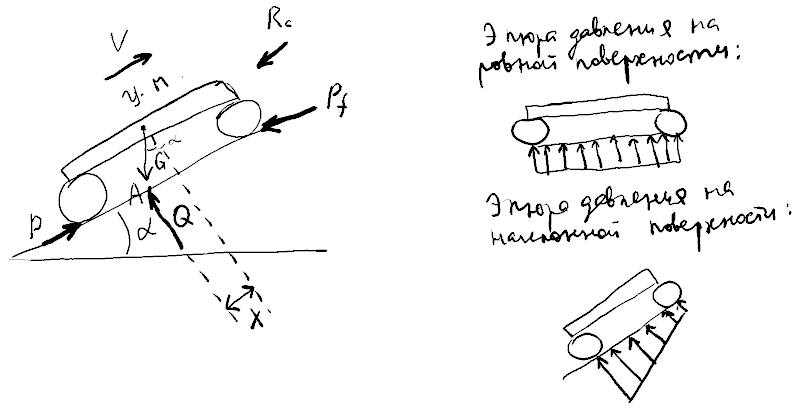 V
Rc
ц.т.
Pf
G α
A
P
α
Q
x
Эпюра давления на
ровной поверхности:
Эпюра давления на
наклонной поверхности: